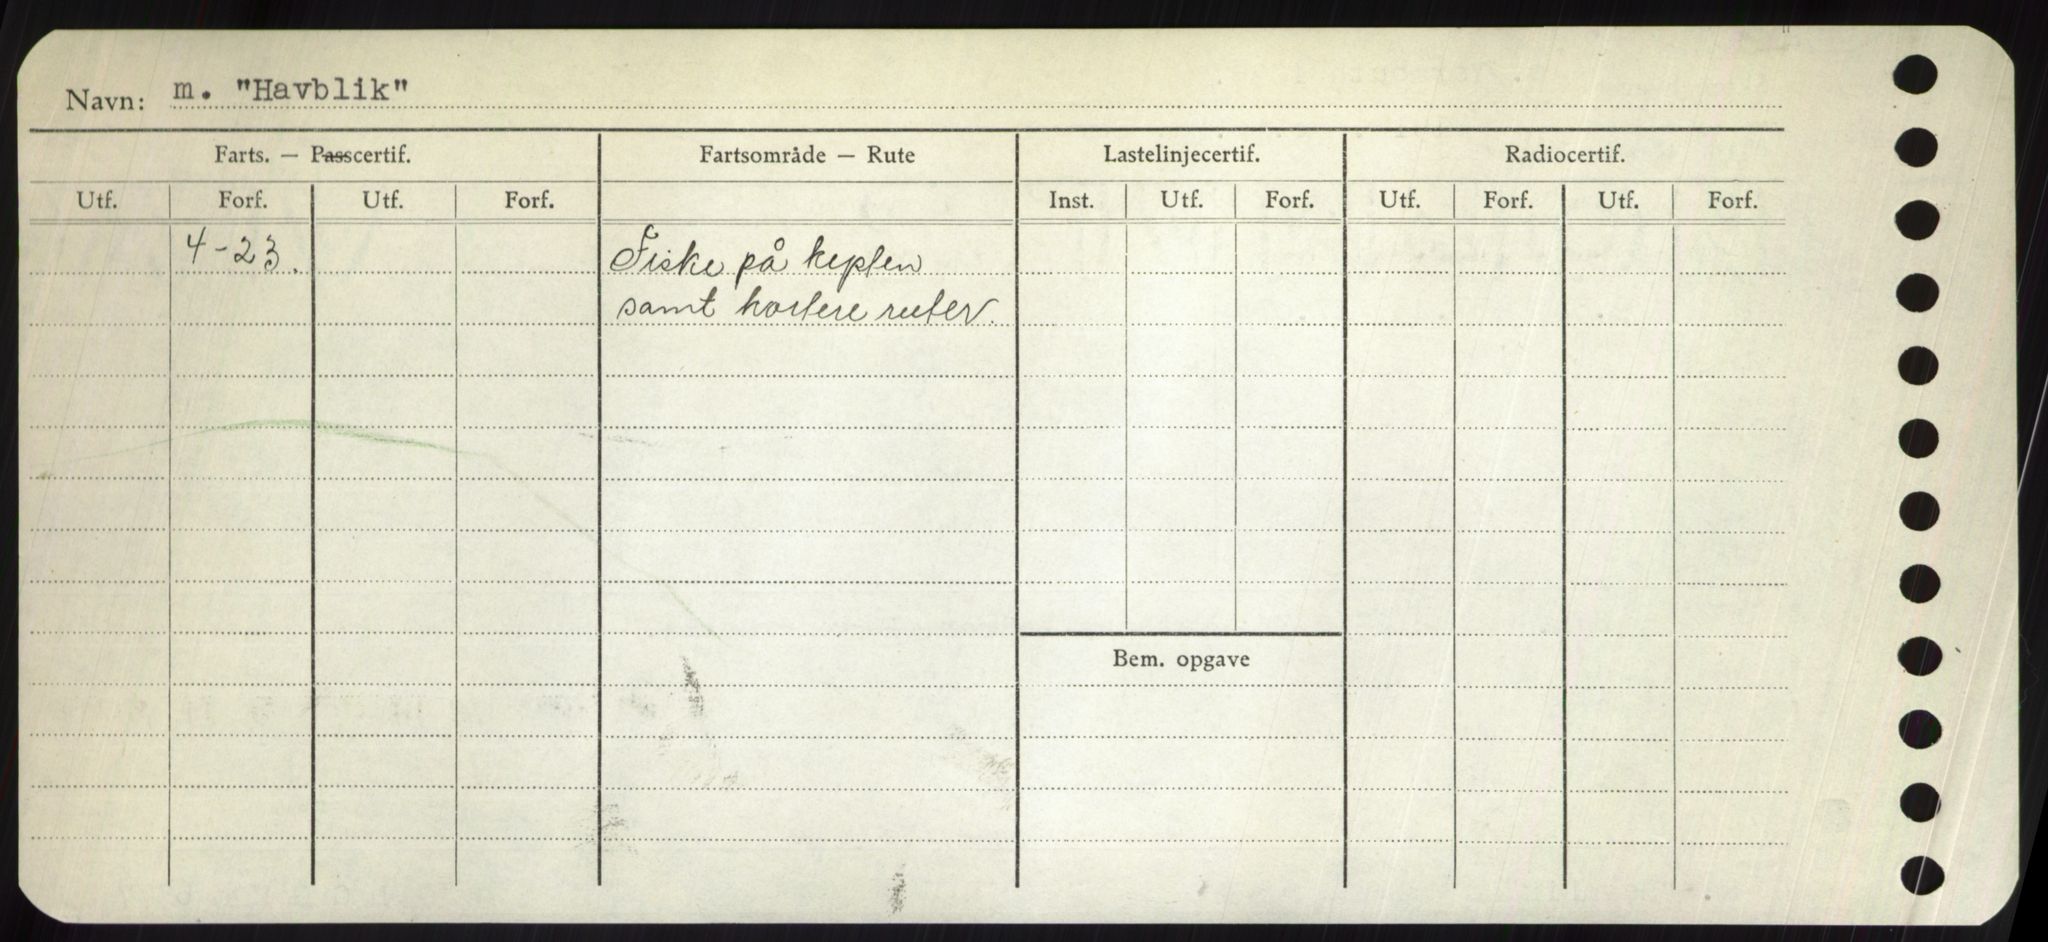 Navn: m. "Havblik"
Farts. — Passcertif. Fartsområde — Rute Lastelinjecertif. Radiocertif.
Utf. Forf. Utf. Forf. Inst. Utf. Forf. Utf. Forf. Utf. Forf.
4-23. Fiske på kysten
samt kortere ruter.
Bem. opgave